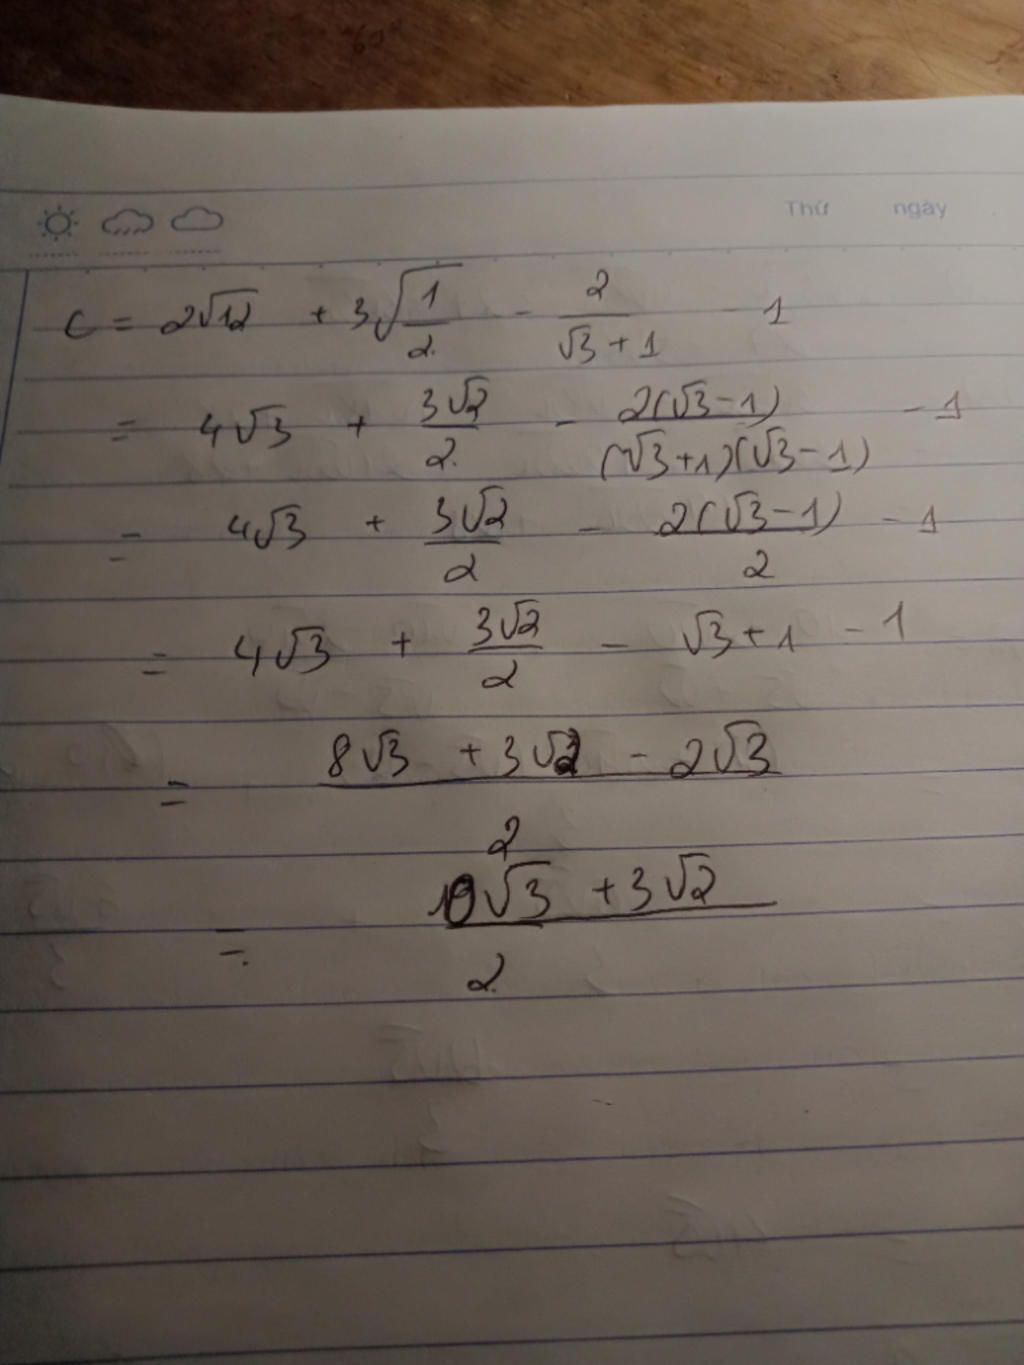 Thứ ngày
C = 2√12 + 3√(1/2) - 2/(√3 + 1) - 1
= 4√3 + 3√2/2 - 2(√3 - 1)/((√3 + 1)(√3 - 1)) - 1
= 4√3 + 3√2/2 - 2(√3 - 1)/2 - 1
= 4√3 + 3√2/2 - √3 + 1 - 1
= (8√3 + 3√2 - 2√3)/2
= (10√3 + 3√2)/2